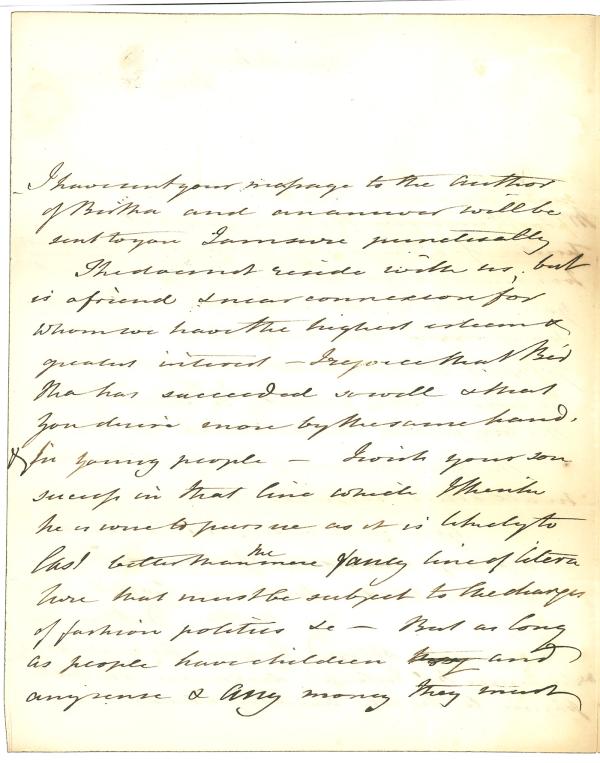 I have sent your message to the author
of Bertha and an answer will be
sent to you I am sure punctually
She does not reside with us, but
is a friend & near connexion for
whom we have the highest esteem &
greatest interest – I rejoice that Ber
tha has succeeded so well & that
you desire more by the same hand,
& for young people – I wish your son
success in that line which I think
he is wise to pursue as it is likely to
last better than the mere fancy line of litera
ture that must be subject to the changes
of fashion politics &c – But as long
as people have children and
any sense & any money they must